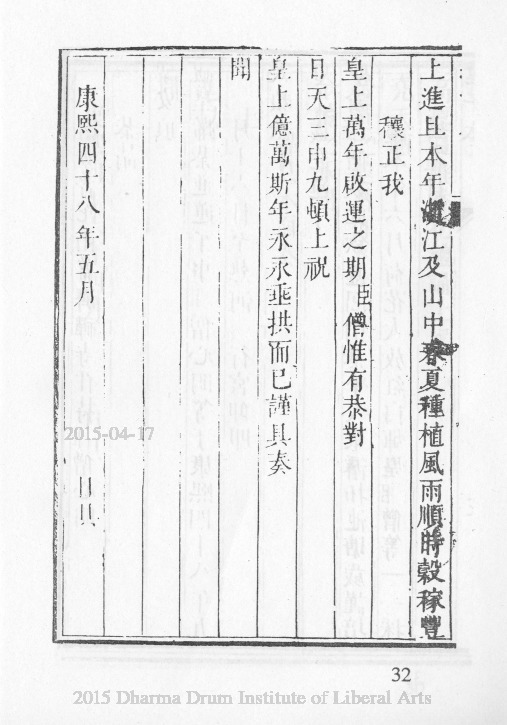 上進且本年浙江及山中春夏種植風雨順時穀稼豐
穰正我
皇上萬年啟運之期臣僧惟有恭對
日天三申九頓上祝
皇上億萬斯年永永垂拱而已謹具奏
聞
康熙四十八年五月 日具
2015-04-17
32
2015 Dharma Drum Institute of Liberal Arts